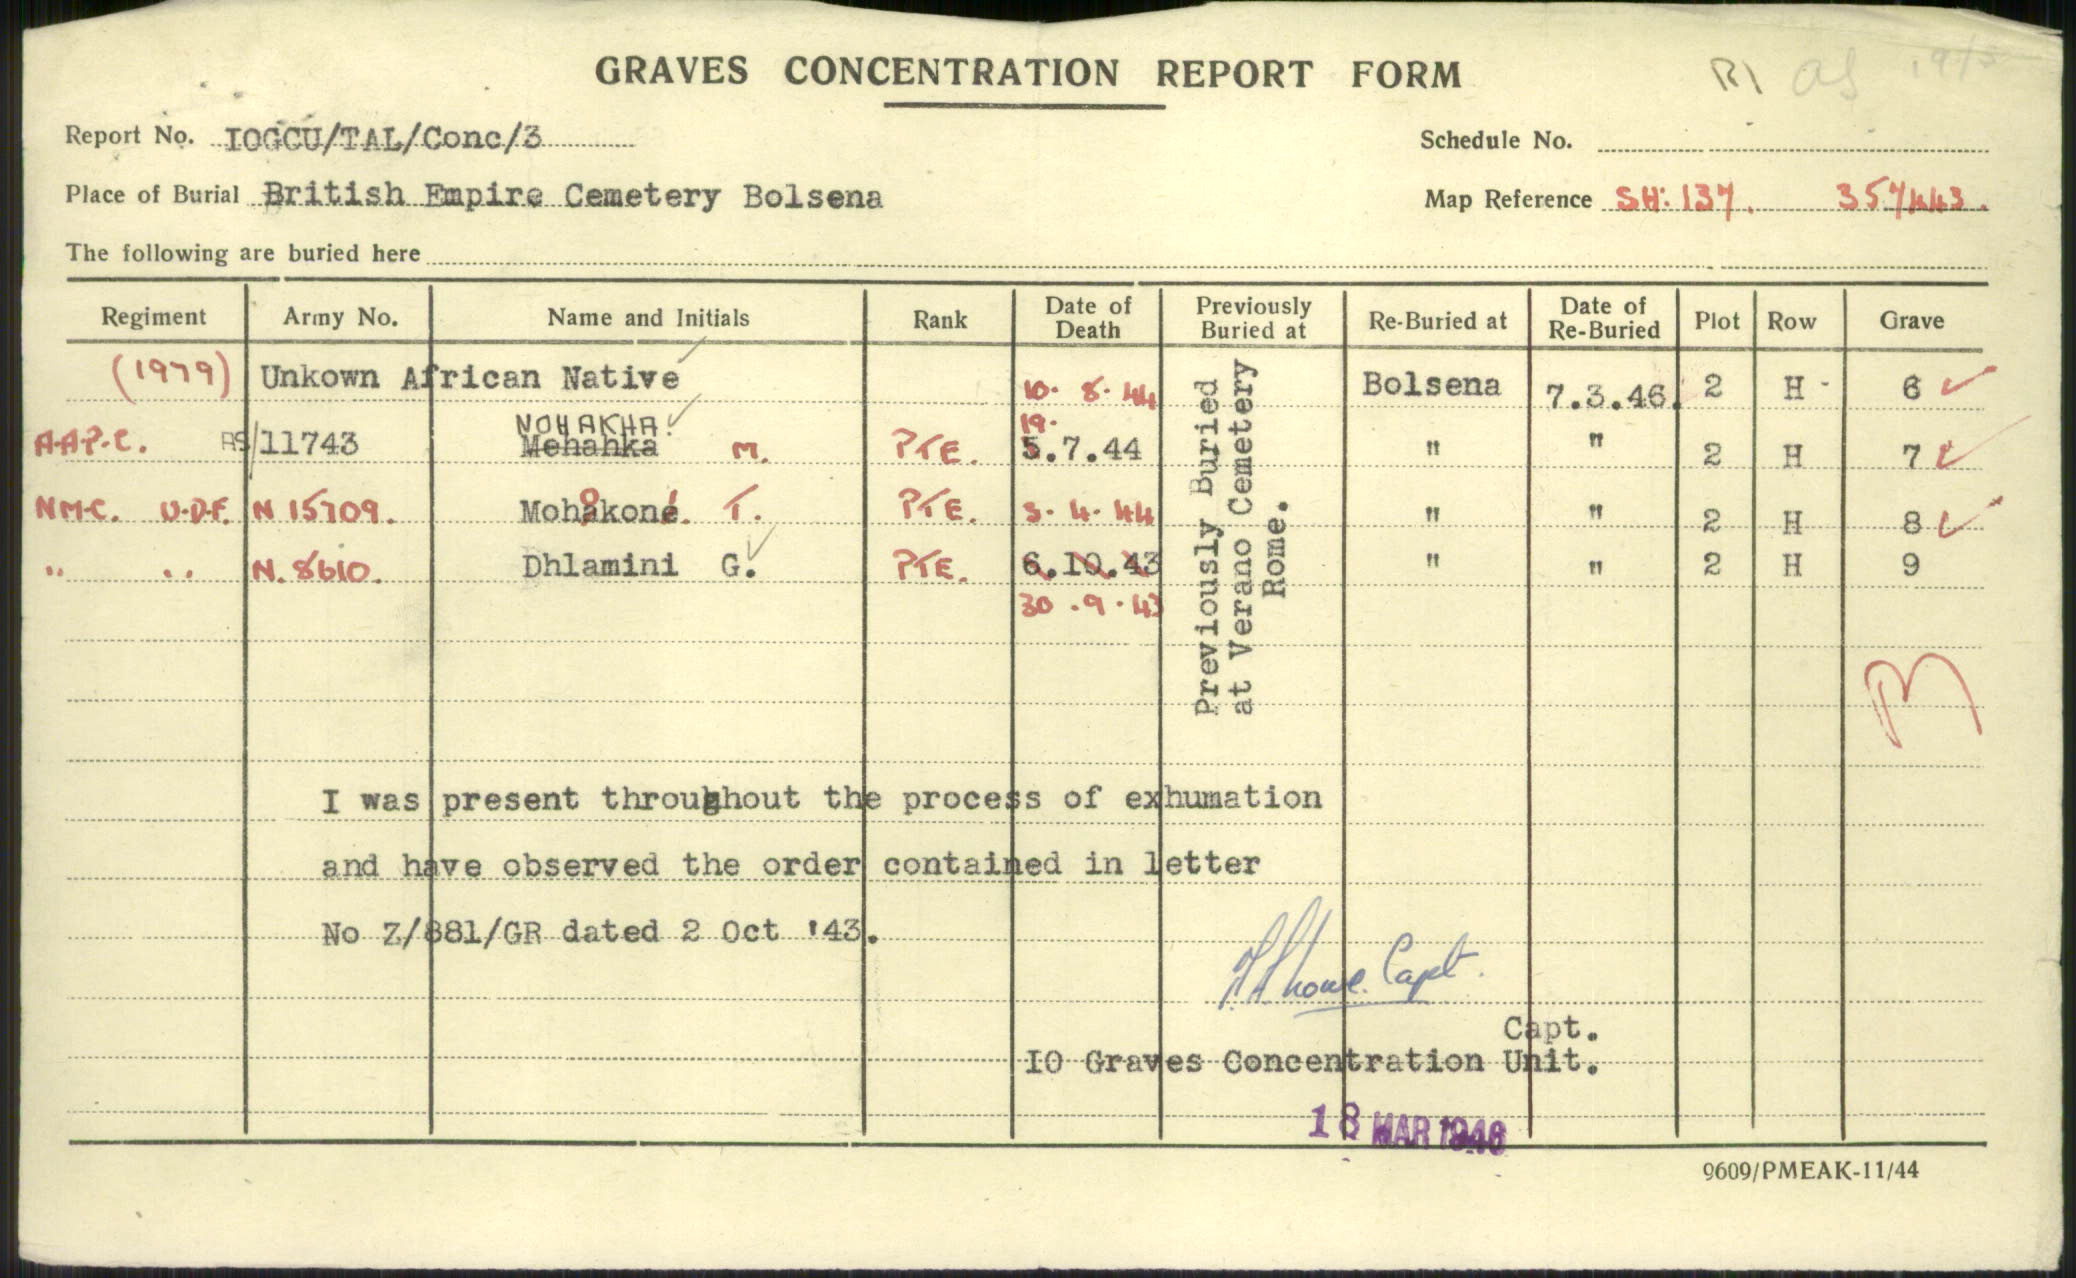 GRAVES CONCENTRATION REPORT FORM
Report No. IOGCU/TAL/Conc/3
Schedule No.
Place of Burial British Empire Cemetery Bolsena
Map Reference SH: 137. 357443.
The following are buried here
Regiment Army No. Name and Initials Rank Date of Death Previously Buried at Re-Buried at Date of Re-Buried Plot Row Grave
(1979) Unkown African Native 10. 8. 44 Bolsena 7.3.46. 2 H 6
NOHAKHA. 19.
A.A.P.C. AS/11743 Mehahka M. PTE. 5.7.44 " " 2 H 7
N.M.C. U.D.F. N 15709. Mohakone. T. PTE. 3. 4. 44 " " 2 H 8
" " N. 8610. Dhlamini G. PTE. 6.10.43 " " 2 H 9
30 . 9 . 43
Previously Buried
at Verano Cemetery
Rome.
I was present throughout the process of exhumation
and have observed the order contained in letter
No Z/881/GR dated 2 Oct '43.
Capt.
Capt.
IO Graves Concentration Unit.
18 MAR 1946
9609/PMEAK-11/44